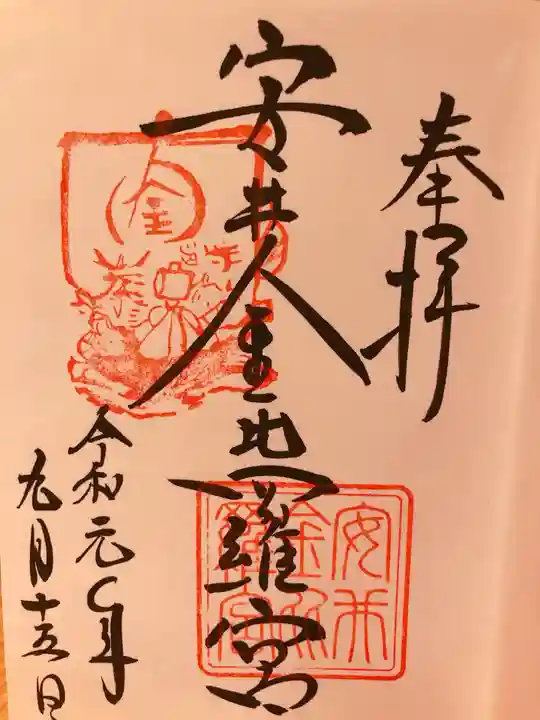 奉拝
安井金毘羅宮
令和元年
九月十五日
金
安井
金毘
羅宮